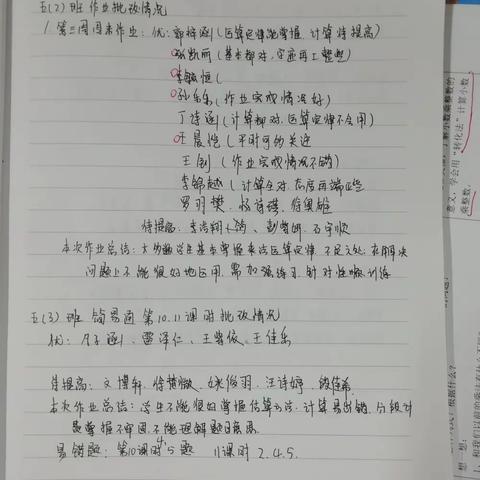 五(2)班 作业批改情况
1.第三周周末作业:优:郭梓涵(运算定律能掌握,计算待提高)
孙凯丽(基本都对,字迹再工整些)
李敏恒(
孙乐乐(作业完成情况好)
丁诗涵(计算都对,运算定律不会用)
王晨皓(平时可多关注
王钊(作业完成情况不错)
李锦越(计算全对,态度再端正些
罗羽樊、杨诗琪、
待提高:李浩翔、彭、石宇顺
本次作业总结:大部分学生基本掌握乘法运算定律,不足之处,在解决
问题上不能很好地运用,需加强练习,针对性训练
五(3)班 简易画第10.11课时批改情况
优:月子涵、雷泽仁、王紫依、王佳乐
待提高:文博轩、姚俊羽、汪诗婷、段佳希
本次作业总结:学生不能很好掌握估算方法,计算易出错,分段计
费掌握不牢固,不能理解题目意思
易错题:第10课时4.5题 11课时 2.4.5.
了解小数乘整数的
意义,学会用“转化法”计算小数
乘整数。
根据什么?
想一想: